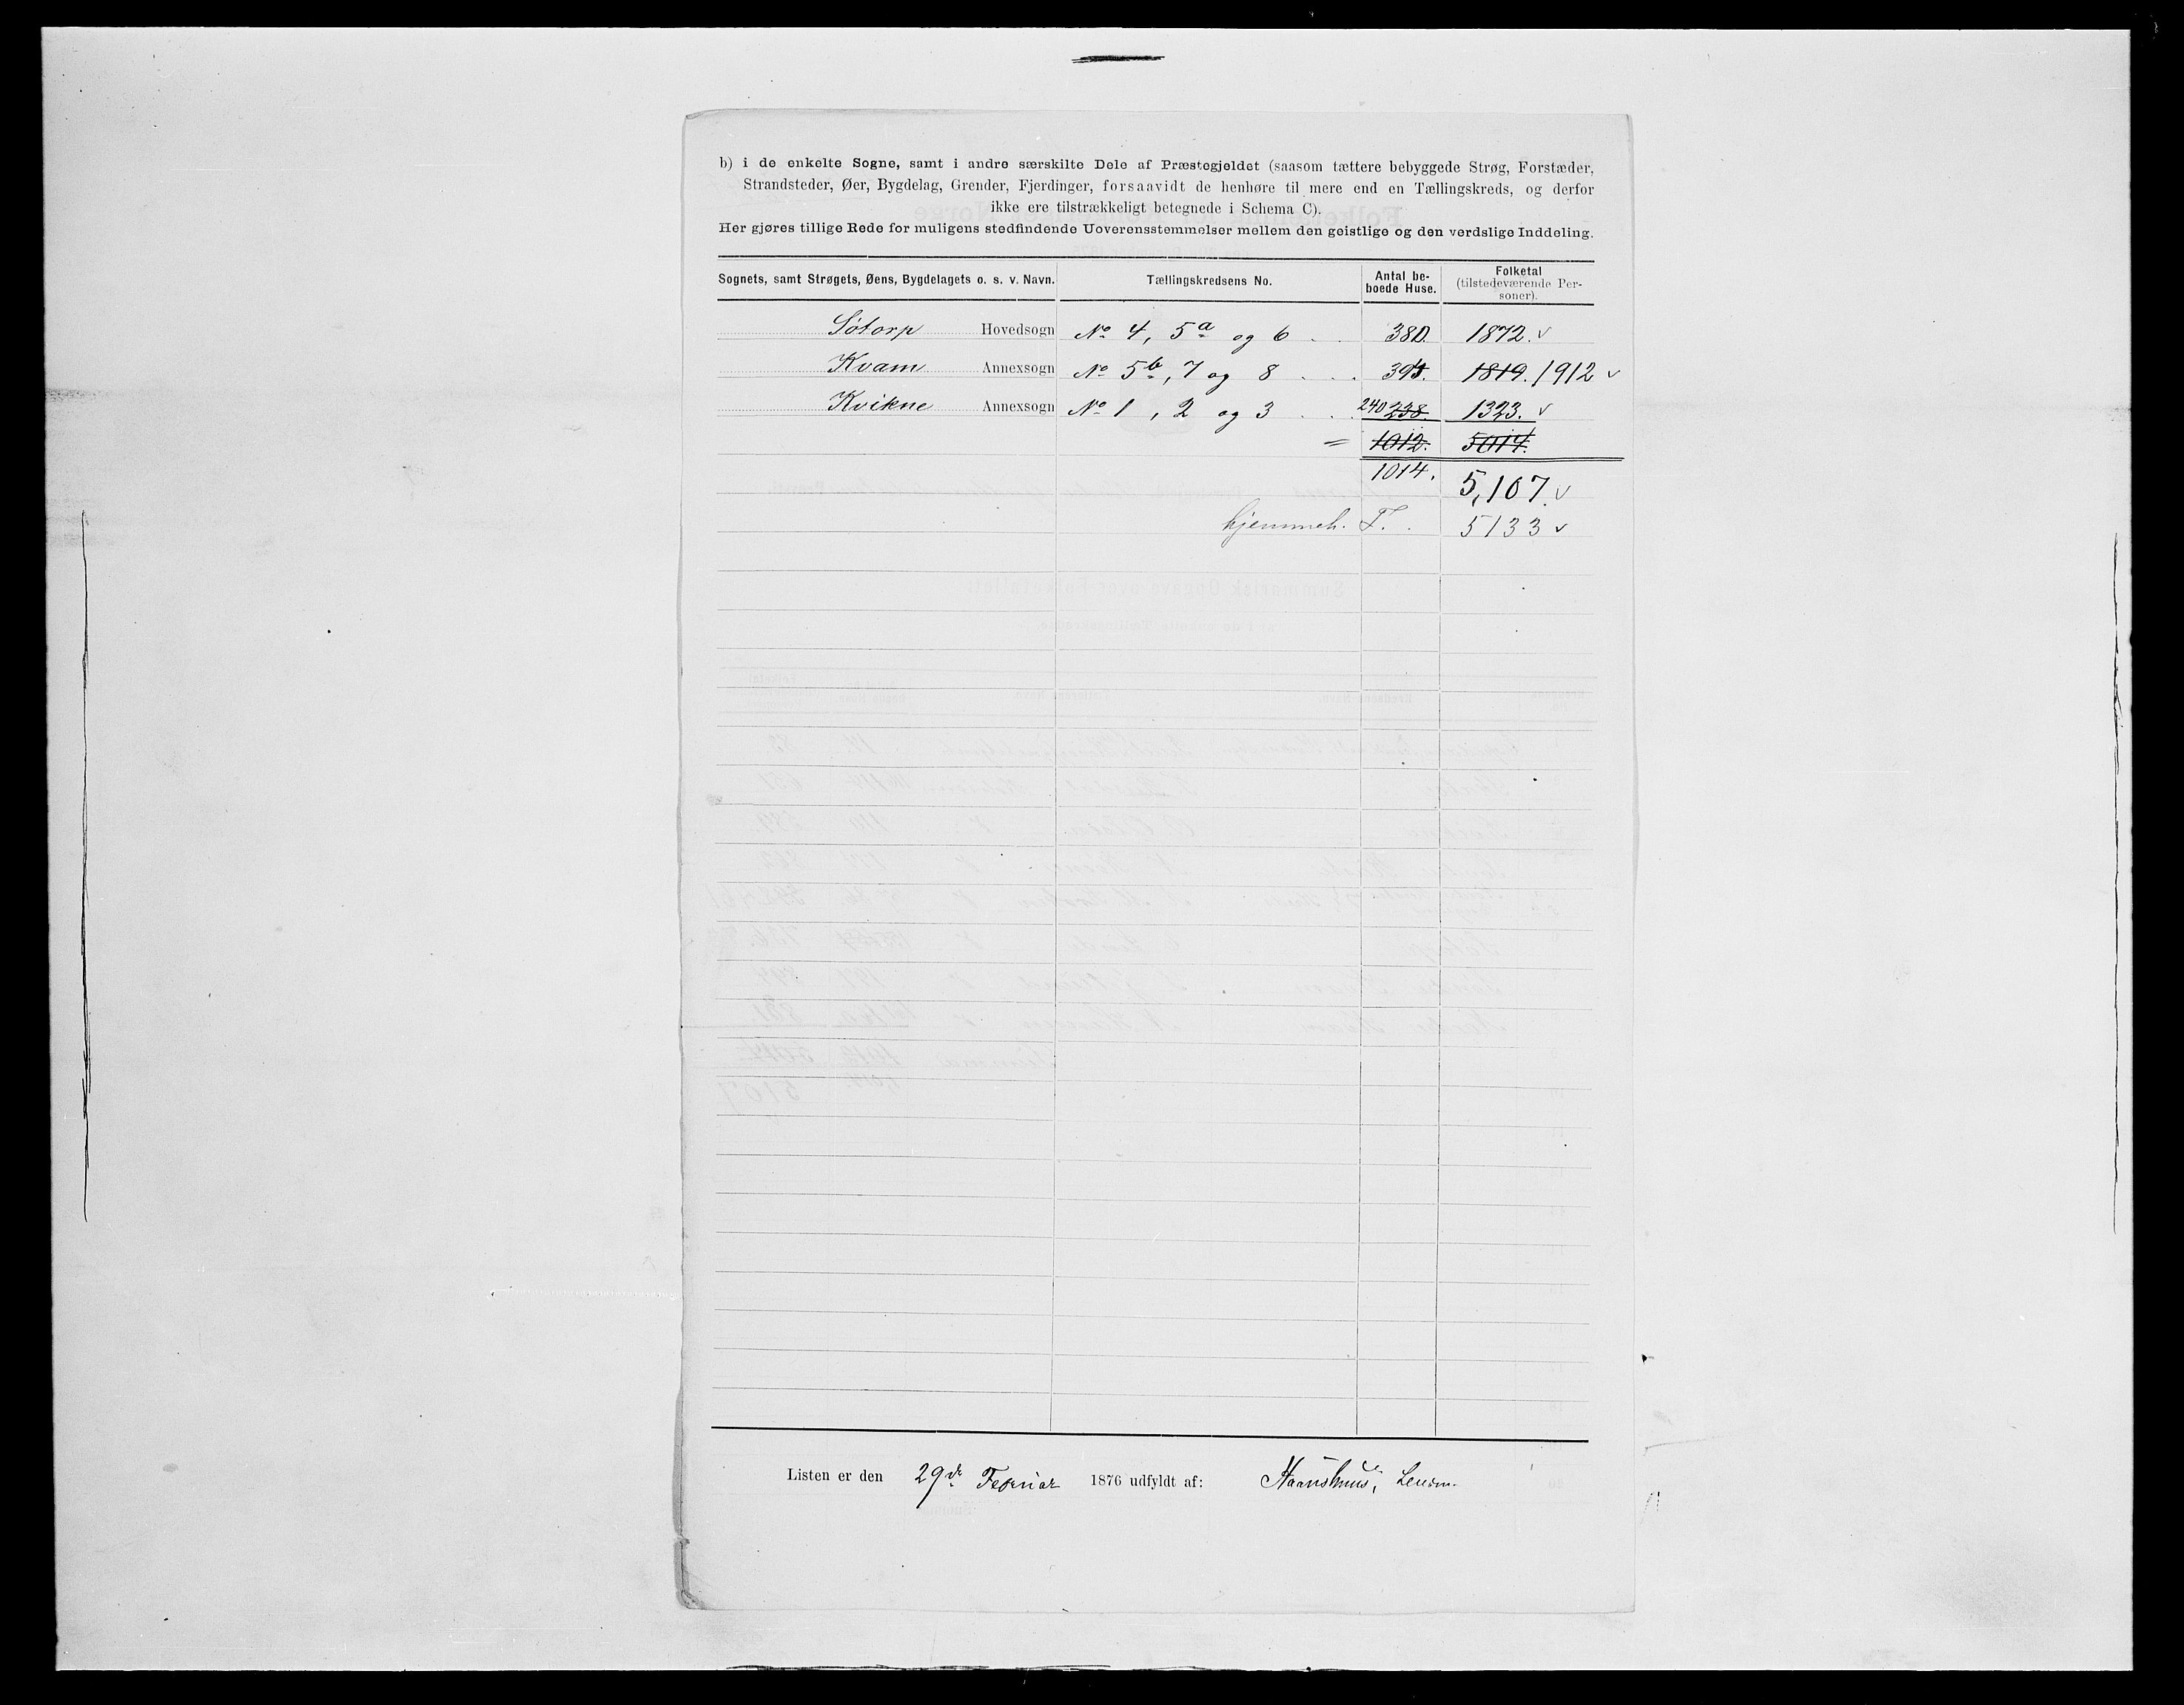 b) i de enkelte Sogne, samt i andre særskilte Dele af Præstegjeldet (saasom tættere bebyggede Strøg, Forstæder,
Strandsteder, Øer, Bygdelag, Grender, Fjerdinger, forsaavidt de henhøre til mere end en Tællingskreds, og derfor
ikke ere tilstrækkeligt betegnede i Schema C).
Her gjøres tillige Rede for muligens stedfindende Uoverensstemmelser mellem den geistlige og den verdslige Inddeling.
Sognets, samt Strøgets, Øens, Bygdelagets o. s. v. Navn. Tællingskredsens No. Antal be-boede Huse. Folketal (tilstedeværende Per-soner).
Sötorp Hovedsogn No 4, 5a og 6 . . 380. 1872. v
Kvam Annexsogn No 5b, 7 og 8 . . . 394. 1819. 1912 v
Kvikne Annexsogn No 1, 2 og 3 . . . 240 238. 1323. v
= 1012. 5014.
1014. 5,107. v
hjemmeh. F. . 5133 v
Listen er den 29de Februar 1876 udfyldt af: Lensm.